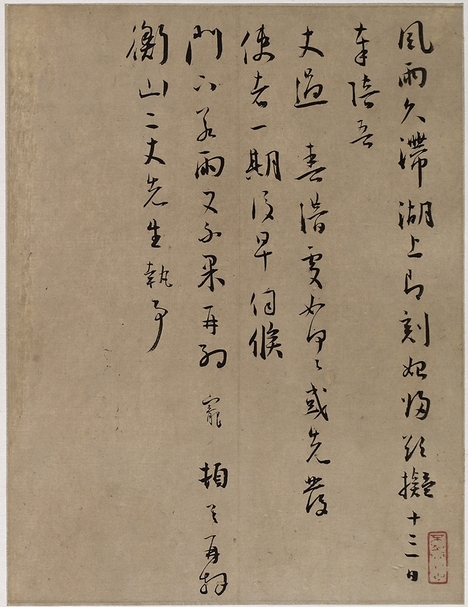 風雨久滯湖上即刻始歸擬十二日
奉陪吾
丈過春潛處如何〻或先發
使者一期後早伺候
門下若雨又不果再約 寵 頓首再拜
衡山二丈先生執事